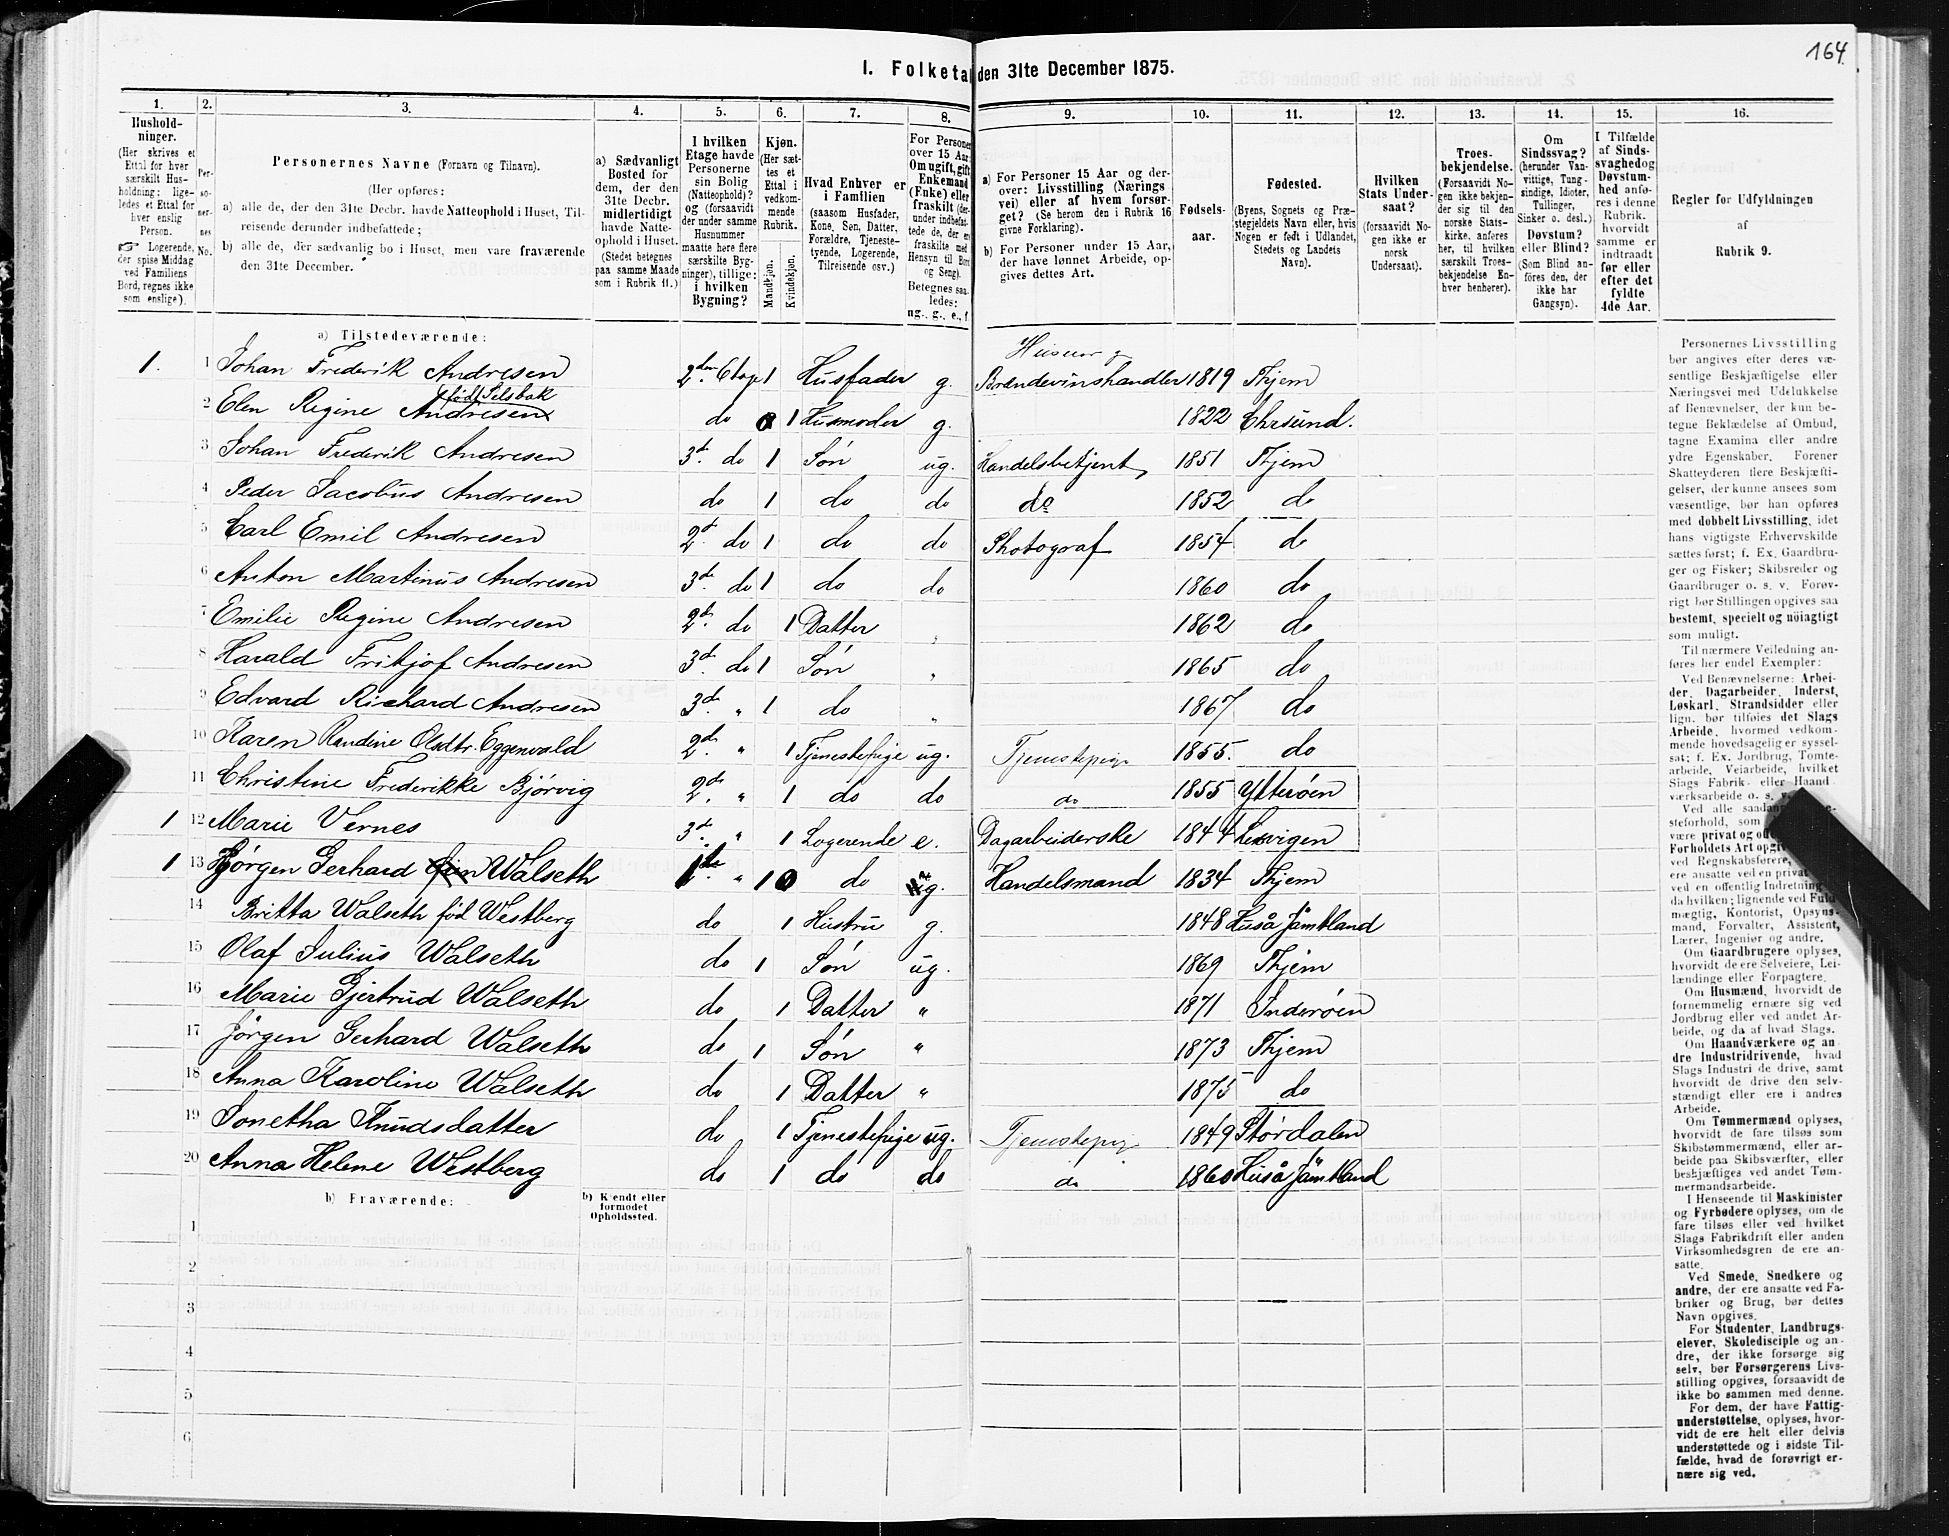 164
I. Folketa den 31te December 1875.
1. 2. 3. 4. 5. 6. 7. 8. 9. 10. 11. 12. 13. 14. 15. 16.
Hushold-
ninger.
(Her skrives et
Ettal for hver
særskilt Hus-
holdning; lige-
ledes et Ettal for
hver enslig
Person.
☞ Logerende,
der spise Middag
ved Familiens
Bord, regnes ikke
som enslige).
Per-
so-
ner-
nes
No.
Personernes Navne (Fornavn og Tilnavn).
(Her opføres:
a) alle de, der den 31te Decbr. havde Natteophold i Huset, Til-
reisende derunder indbefattede;
b) alle de, der sædvanlig bo i Huset, men vare fraværende
den 31te December.
a) Sædvanligt
Bosted for
dem, der den
31te Decbr.
midlertidigt
havde Natte-
ophold i Huset.
(Stedet betegnes
paa samme Maade
som i Rubrik 11.)
I hvilken
Etage havde
Personerne
sin Bolig
(Natteophold)?
og (forsaavidt
der under samme
Husnummer
maatte høre flere
særskilte Byg-
ninger), tillige:
i hvilken
Bygning?
Kjøn.
(Her sæt-
tes et
Ettal i
vedkom-
mende
Rubrik.
Mandkjøn.
Kvindekjøn.
Hvad Enhver er
i Familien
(saasom Husfader,
Kone, Søn, Datter,
Forældre, Tjeneste-
tyende, Logerende,
Tilreisende osv.)
For Persone
over 15 Aar
Om ugift, gift
Enkemand
(Enke) eller
fraskilt (der-
under indbefat-
tede de, der er
fraskilte med
Hensyn til Bord
og Seng).
Betegnes saa-
ledes:
ug., g., e., f
a) For Personer 15 Aar og der-
over: Livsstilling (Nærings
vei) eller af hvem forsør-
get? (Se herom den i Rubrik 16
givne Forklaring).
b) For Personer under 15 Aar,
der have lønnet Arbeide, op-
gives dettes Art.
Fødsels-
aar.
Fødested.
(Byens, Sognets og Præ-
stegjeldets Navn eller, hvis
Nogen er født i Udlandet,
Stedets og Landets
Navn).
Hvilken
Stats Under-
saat?
(forsaavidt No-
gen ikke er
norsk
Undersaat).
Troes-
bekjendelse.
(Forsaavidt No-
gen ikke bekjen-
der sig til den
norske Stats-
kirke. anføres
her, til hvilken
særskilt Troes-
bekjendelse En-
hver henhører).
Om
Sindssvag?
(herunder Van-
vittige, Tung-
sindige, Idioter,
Tullinger,
Sinker o. desl.)
Døvstum?
eller Blind?
(Som Blind an-
føres den, der
ikke har
Gangsyn).
I Tilfælde
af Sinds-
svaghed og
Døvstum-
hed anfø-
res i denne
Rubrik.
hvorvidt
samme er
indtraadt
før eller
efter det
fyldte
4de Aar.
Regler for Udfyldningen
af
Rubrik 9.
a) Tilstedeværende:
1. 1 Johan Frederik Andresen 2den Etage 1 Husfader g. Brændevinshandler 1819 Thjem
født Selsbak
2 Elen Regine Andresen do 1 Husmoder g. 1822 Chrsund.
3 Johan Frederik Andresen 3d. do 1 Søn ug. Handelsbetjent 1851 Thjem
4 Peder Jacobus Andresen do 1 do do do 1852 do
5 Carl Emil Andresen 2d. do 1 do do Photograf 1854 do
6 Anton Martinus Andresen 3de do 1 do do 1860 do
7 Emilie Regine Andresen 2d. do 1 Datter " 1862 do
8 Harald Fritjof Andresen 3d do 1 Søn " 1865 do
9 Edvard Richard Andresen 3d. " 1 do " 1867 do
10 Karen Randine Olsdtr. Eggenvold 2d. " 1 Tjenestepige ug. Tjenestepige 1855. do
11 Christine Frederikke Bjørvig 2de. " 1 do do do 1855 Ytterøen
1 12 Marie Vernes 3de. " 1 Logerende e. Dagarbeiderske 1844 Leksvigen
1 13 Jørgen Gerhard Walseth 1ste. " 1 do g. Handelsmand 1834 Thjem
14 Britta Walseth fød Westberg do 1 Hustru g. 1848 Huså Jämtland
15 Olaf Julius Walseth do 1 Søn ug. 1869 Thjem
16 Marie Gjertrud Walseth do 1 Datter " 1871 Inderøen
17 Jørgen Gerhard Walseth do 1 Søn " 1873 Thjem
18 Anna Karoline Walseth do 1 Datter " 1875 do
19 Jonetha Knudsdatter do 1 Tjenestepige ug. Tjenestepige 1849 Størdalen
20 Anna Helene Westberg do 1 do do do 1860 Huså Jämtland
b) Fraværende:
b) Kjendt eller
formodet
Opholdssted.
1
2
3
4
5
6
Personernes Livsstilling
bør angives efter deres væ-
sentlige Beskjæftigelse eller
Næringsvei med Udelukkelse
af Benævnelser, der kun be-
tegne Beklædelse af Ombud,
tagne Examina eller andre
ydre Egenskaber. Forener
Skatteyderen flere Beskjæfti-
gelser, der kunne ansees som
væsentlige, bør han opføres
med dobbelt Livsstilling, idet
hans vigtigste Erhvervskilde
sættes først; f. Ex. Gaardbru-
ger og Fisker; Skibsreder og
Gaardbruger o. s. v. Forøv-
rigt bør Stillingen opgives saa
bestemt, specielt og nöiagtigt
som muligt.
Til nærmere Veiledning an-
føres her endel Exempler:
Ved Benævnelserne: Arbei-
der, Dagarbeider, Inderst,
Løskarl, Strandsidder eller
lign. bør tilføies det Slags
Arbeide, hvormed vedkom-
mende hovedsagelig er syssel-
sat; f. Ex. Jordbrug, Tomte-
arbeide, Veiarbeide, hvilket
Slags Fabrik- eller Haand
værksarbeide o. s. v.
Ved alle saadan
steforhold, som
være privat og off
Forholdets Art opgiv
ved Regnskabsførere,
ere ansatte ved en privat
ved en offentlig Indretning
da hvilken; lignende ved Fuld
mægtig, Kontorist, Opsyns-
mand, Forvalter, Assistent,
Lærer, Ingeniør og andre.
Om Gaardbrugere oplyses,
hvorvidt de ere Selveiere, Lei-
lændinge eller Forpagtere.
Om Husmænd, hvorvidt de
fornemmelig ernære sig ved
Jordbrug eller ved andet Ar-
beide, og da af hvad Slags.
Om Haandværkere og an-
dre Industridrivende, hvad
Slags Industri de drive, samt
hvorvidt de drive den selv-
stændigt eller ere i andres
Arbeide.
Om Tømmermænd oplyses,
hvorvidt de fare tilsøs som
Skibstømmermænd, eller ar-
beide paa Skibsværfter, eller
beskjæftiges ved andet Tøm-
mermandsarbeide.
I Henseende til Maskinister
og Fyrbødere oplyses, om de
fare tilsøs eller ved hvilket
Slags Fabrikdrift eller anden
Virksomhedsgren de ere an-
satte.
Ved Smede, Snedkere og
andre, der ere ansatte ved Fa-
briker og Brug, bør dettes
Navn opgives.
For Studenter, Landbrugs-
elever, Skoledisciple og an-
dre, der ikke forsørge sig
selv, bør Forsørgerens Livs-
stilling opgives, forsaavidt de
ikke bo sammen med denne.
For dem, der have Fattig-
understøttelse, oplyses, hvor-
vidt de ere helt eller delvis
understøttede og i sidste Til-
fælde, hvad de forøvrigt er-
nære sig ved.